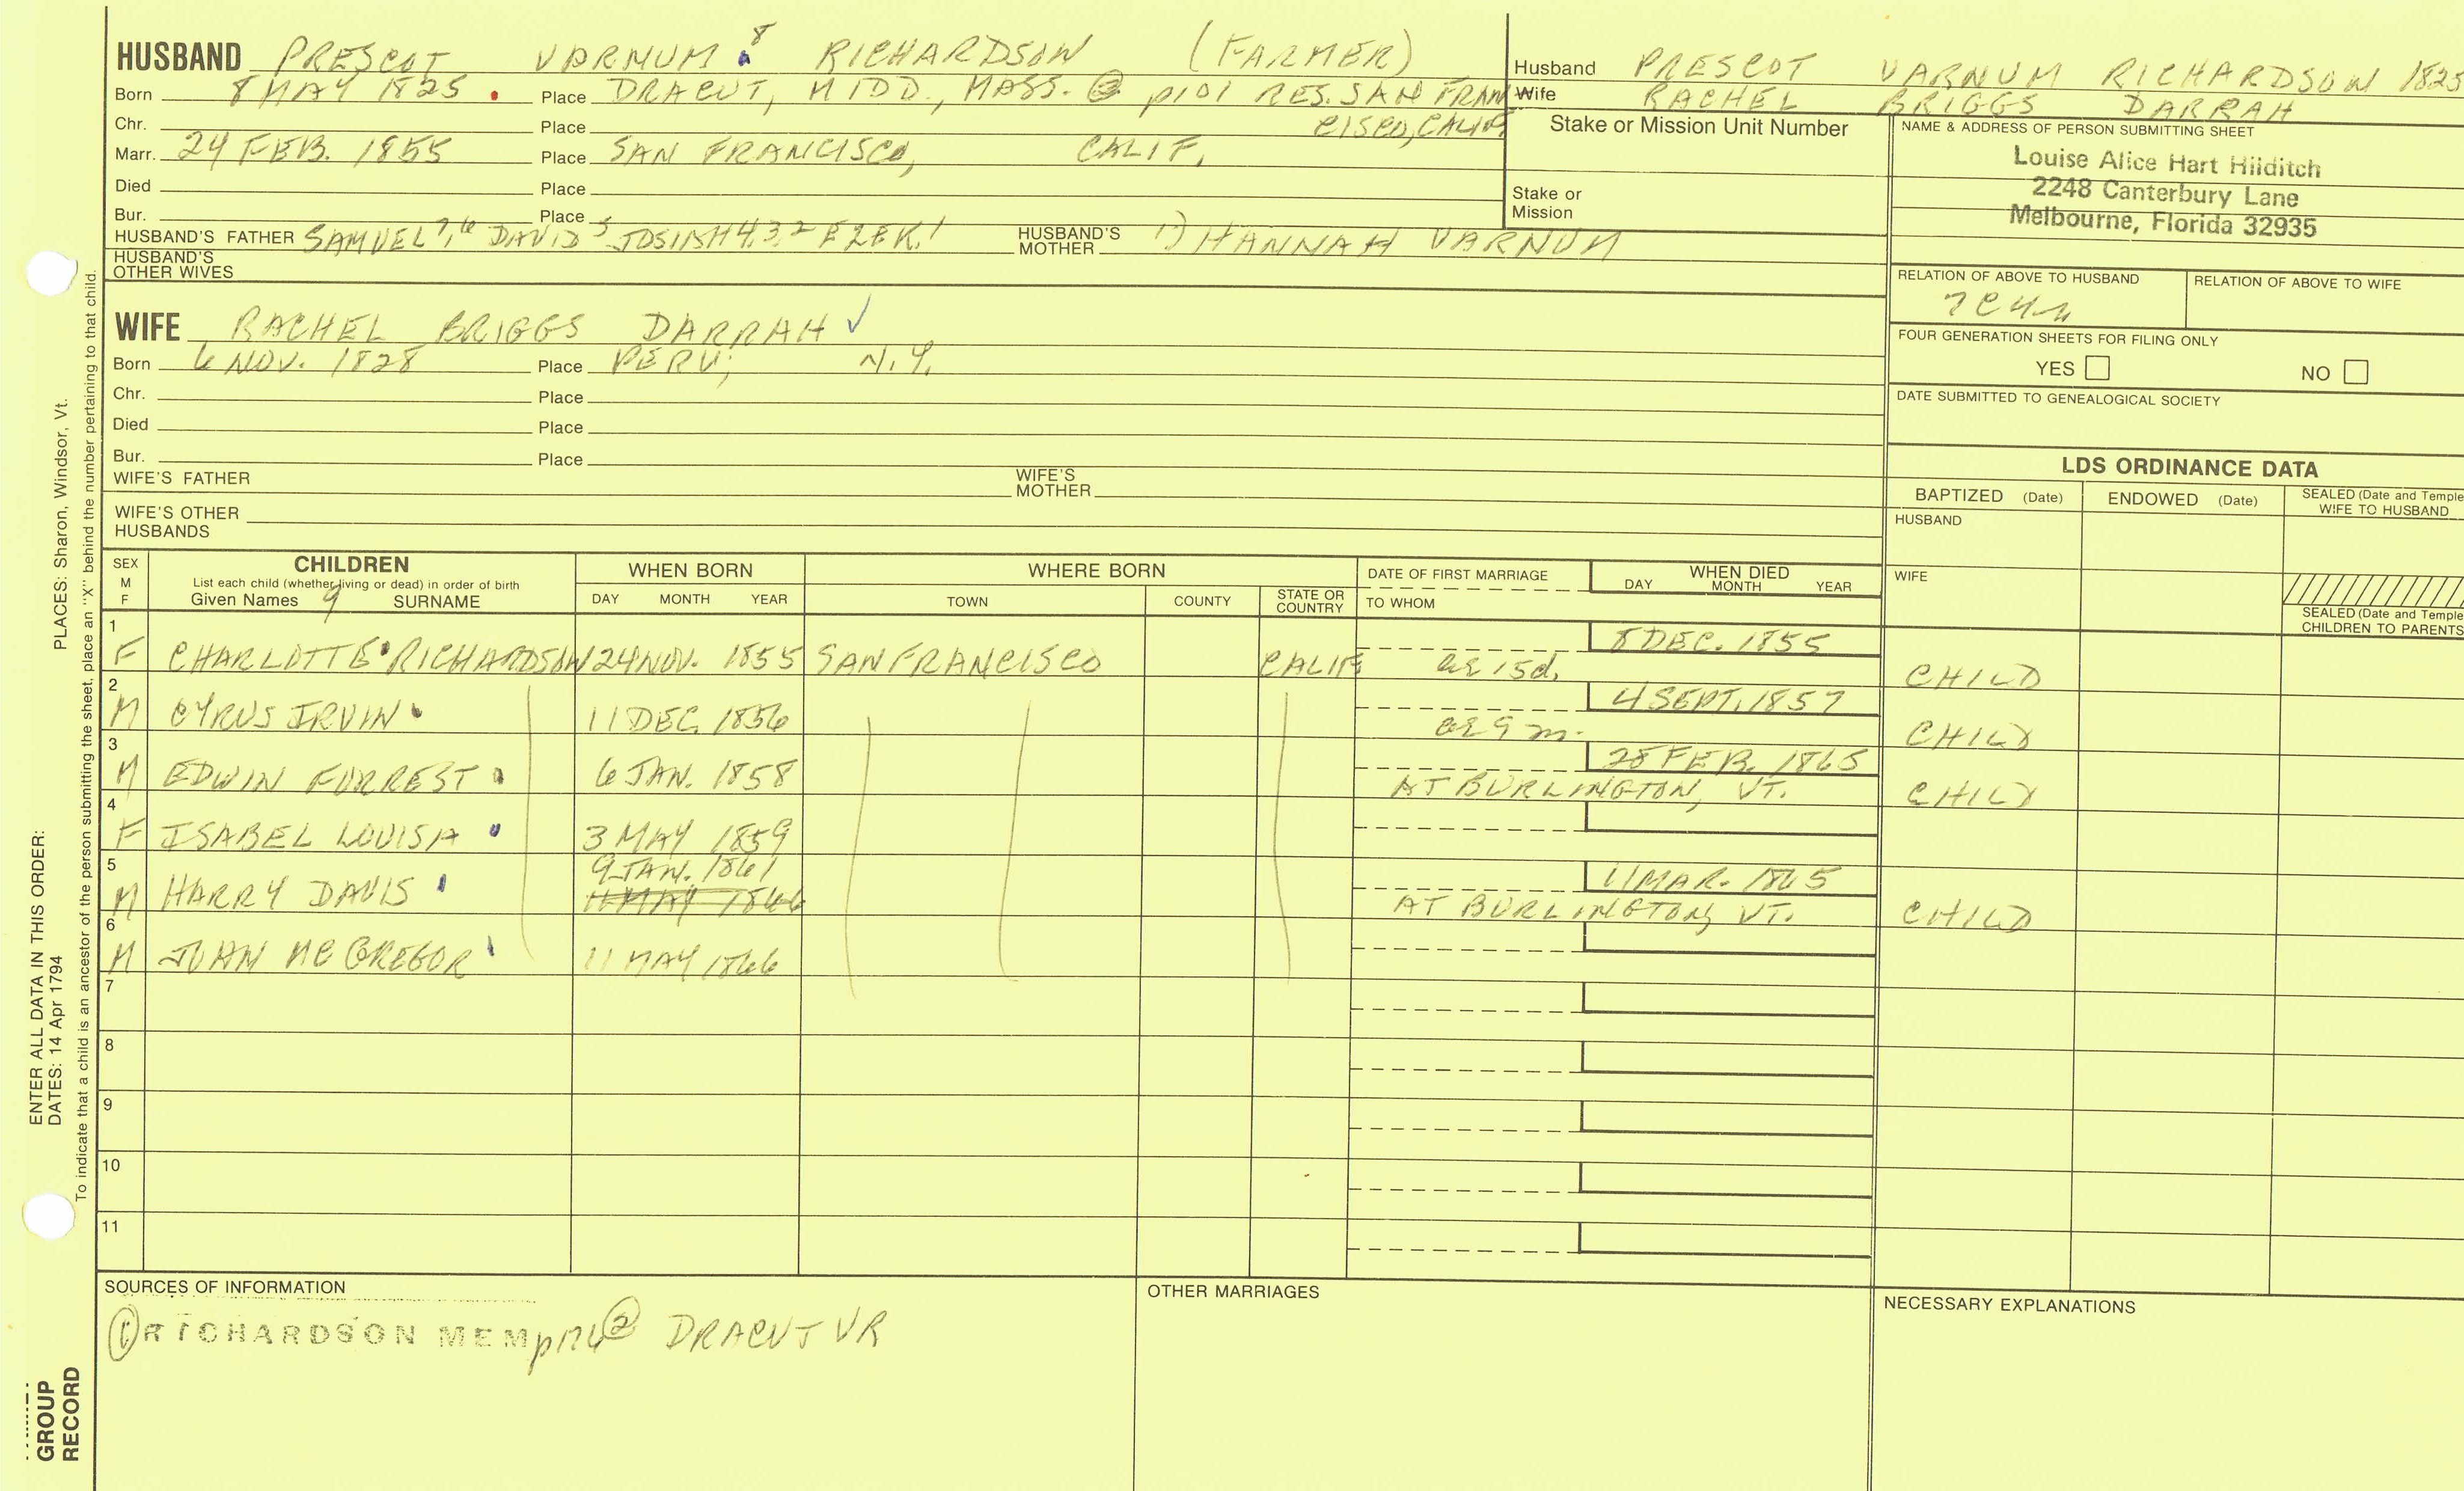 HUSBAND PRESCOT VARNUM 8 RICHARDSON (FARMER)
Born 8 MAY 1825 Place DRACUT, MIDD., MASS. ② p101 RES. SAN FRAN
CISCO, CALIF.
Chr. Place
Marr. 24 FEB. 1855 Place SAN FRANCISCO, CALIF.
Died Place
Bur. Place
HUSBAND'S FATHER SAMUEL 7,6 DAVID 5 JOSIAH 4,3,2 EZEK. 1 HUSBAND'S MOTHER 1) HANNAH VARNUM
HUSBAND'S OTHER WIVES
Husband PRESCOT VARNUM RICHARDSON 1825
Wife RACHEL BRIGGS DARRAH
Stake or Mission Unit Number
Stake or Mission
NAME & ADDRESS OF PERSON SUBMITTING SHEET
Louise Alice Hart Hilditch
2248 Canterbury Lane
Melbourne, Florida 32935
RELATION OF ABOVE TO HUSBAND RELATION OF ABOVE TO WIFE
FOUR GENERATION SHEETS FOR FILING ONLY
YES NO
DATE SUBMITTED TO GENEALOGICAL SOCIETY
WIFE RACHEL BRIGGS DARRAH ✓
Born 6 NOV. 1828 Place PERU, N.Y.
Chr. Place
Died Place
Bur. Place
WIFE'S FATHER WIFE'S MOTHER
WIFE'S OTHER HUSBANDS
LDS ORDINANCE DATA
BAPTIZED (Date) ENDOWED (Date) SEALED (Date and Temple
WIFE TO HUSBAND
HUSBAND
WIFE
SEALED (Date and Temple
CHILDREN TO PARENTS
SEX M F
CHILDREN
List each child (whether living or dead) in order of birth
Given Names 9 SURNAME
WHEN BORN
DAY MONTH YEAR
WHERE BORN
TOWN COUNTY STATE OR COUNTRY
DATE OF FIRST MARRIAGE
TO WHOM
WHEN DIED
DAY MONTH YEAR
1 F CHARLOTTE RICHARDSON 24 NOV. 1855 SAN FRANCISCO CALIF ae 15d. 8 DEC. 1855 CHILD
2 M CYRUS IRVIN 11 DEC. 1856 ae 9 m. 4 SEPT. 1857 CHILD
3 M EDWIN FORREST 6 JAN. 1858 28 FEB. 1865 AT BURLINGTON, VT. CHILD
4 F ISABEL LOUISA 3 MAY 1859
5 M HARRY DAVIS 9 JAN. 1861 11 MAY 1866 11 MAR. 1865 AT BURLINGTON, VT. CHILD
6 M JOHN MC GREGOR 11 MAY 1866
7
8
9
10
11
SOURCES OF INFORMATION
① RICHARDSON MEM p174 ② DRACUT VR
OTHER MARRIAGES
NECESSARY EXPLANATIONS
ENTER ALL DATA IN THIS ORDER:
DATES: 14 Apr 1794
PLACES: Sharon, Windsor, Vt.
To indicate that a child is an ancestor of the person submitting the sheet, place an "X" behind the number pertaining to that child.
GROUP
RECORD